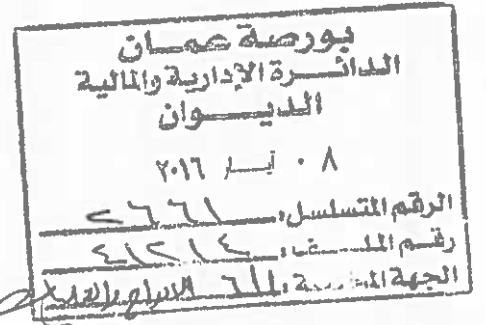 بورصة عمان
الدائرة الإدارية والمالية
الديوان
٠٨ أيار ٢٠١٦
الرقم المتسلسل: ٢٦٦١
رقم الملف: ٤١٢١٤
الجهة المختصة: الإدراج